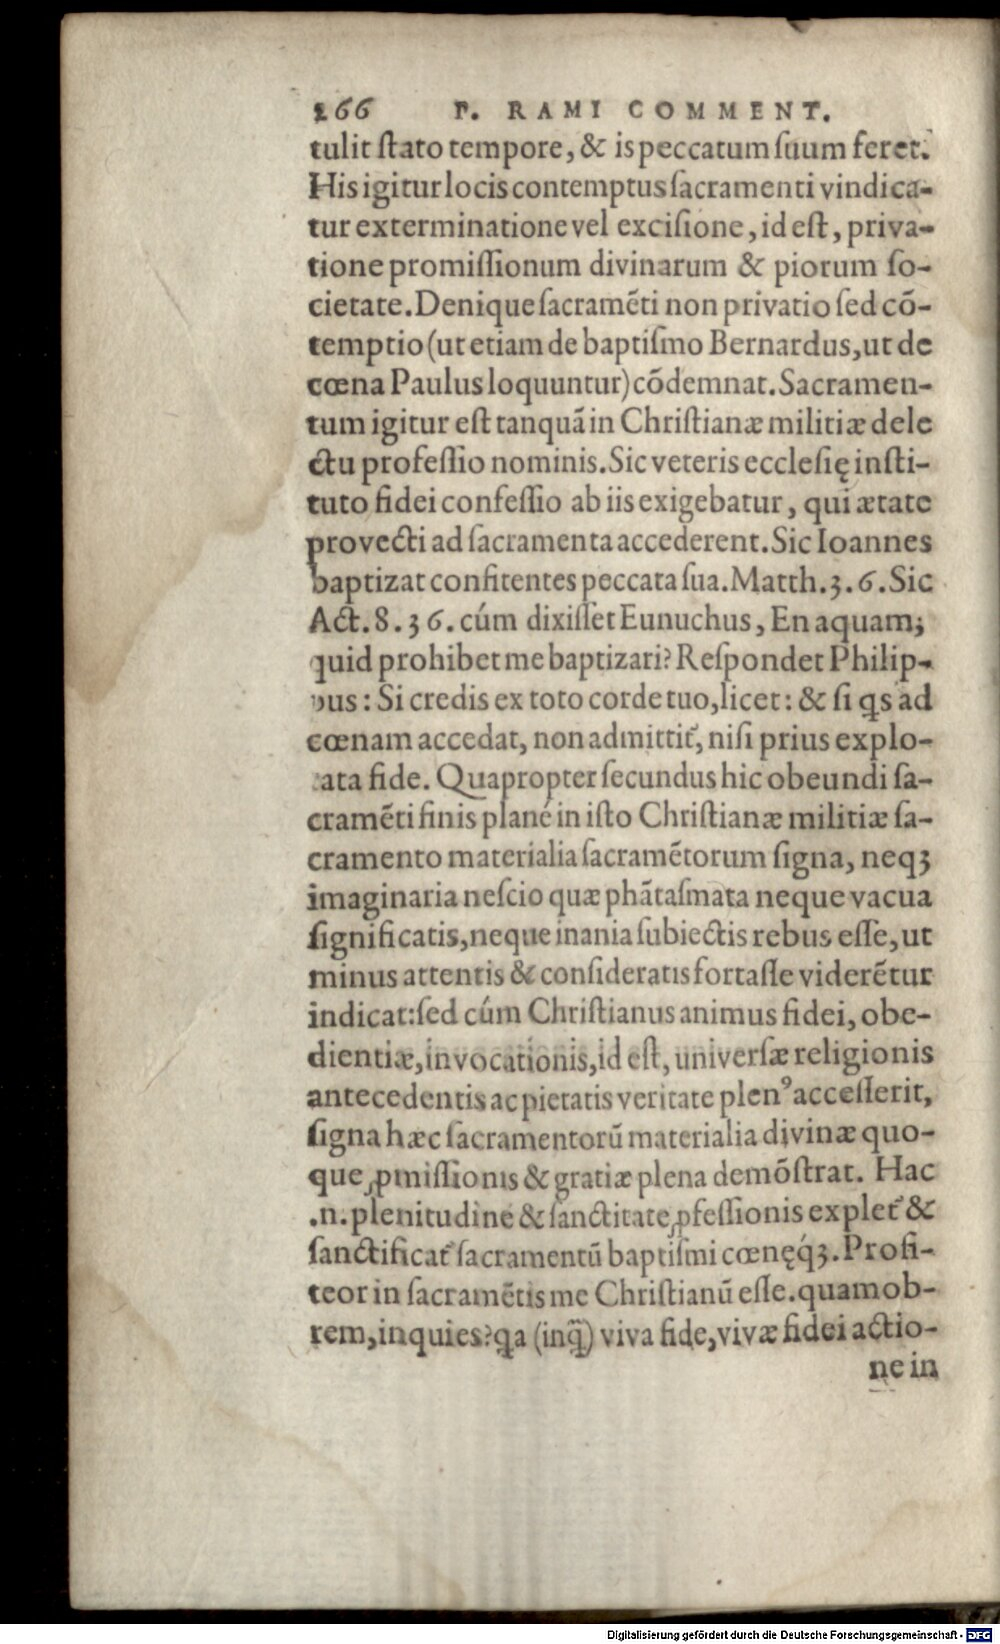 266 P. RAMI COMMENT.
tulit ſtato tempore, & is peccatum ſuum feret.
His igitur locis contemptus ſacramenti vindica-
tur exterminatione vel exciſione, id eſt, priva-
tione promiſſionum divinarum & piorum ſo-
cietate. Denique ſacramẽti non privatio ſed cõ-
temptio (ut etiam de baptiſmo Bernardus, ut de
cœna Paulus loquuntur) cõdemnat. Sacramen-
tum igitur eſt tanquã in Chriſtianæ militiæ dele
ctu profeſſio nominis. Sic veteris eccleſię inſti-
tuto fidei confeſſio ab iis exigebatur, qui ætate
provecti ad ſacramenta accederent. Sic Ioannes
baptizat confitentes peccata ſua. Matth. 3. 6. Sic
Act. 8. 36. cúm dixiſſet Eunuchus, En aquam;
quid prohibet me baptizari? Reſpondet Philip-
pus: Si credis ex toto corde tuo, licet: & ſi ꝗs ad
cœnam accedat, non admittit᷑, niſi prius explo-
rata fide. Quapropter ſecundus hic obeundi ſa-
cramẽti finis plané in iſto Chriſtianæ militiæ ſa-
cramento materialia ſacramẽtorum ſigna, neqꝫ
imaginaria neſcio quæ phãtaſmata neque vacua
ſignificatis, neque inania ſubiectis rebus eſſe, ut
minus attentis & conſideratis fortaſſe viderẽtur
indicat: ſed cúm Chriſtianus animus fidei, obe-
dientiæ, invocationis, id eſt, univerſæ religionis
antecedentis ac pietatis veritate plenꝰ acceſſerit,
ſigna hæc ſacramentorũ materialia divinæ quo-
que ꝓmiſſionis & gratiæ plena demõſtrat. Hac
.n. plenitudine & ſanctitate ꝓfeſſionis explet᷑ &
ſanctificat᷑ ſacramentũ baptiſmi cœnęq́ꝫ. Profi-
teor in ſacramẽtis me Chriſtianũ eſſe. quamob-
rem, inquies? ꝗa (inꝗ̃) viva fide, vivæ fidei actio-
ne in
Digitalisierung gefördert durch die Deutsche Forschungsgemeinschaft - DFG